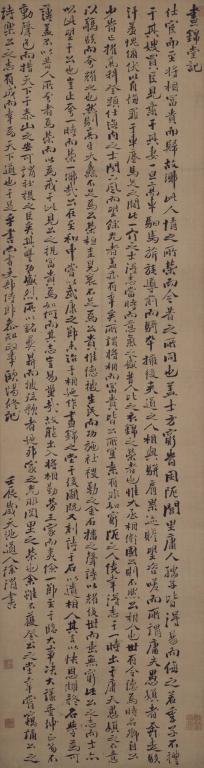 晝錦堂記
仕宦而至將相富貴而歸故鄉此人情之所榮而今昔之所同也蓋士方窮時困阨閭里庸人孺子皆得易而侮之若季子不禮
于其嫂買臣見棄于其妻一旦高車駟馬旗旄導前而騎卒擁後夾道之人相與駢肩累迹瞻望咨嗟而所謂庸夫愚婦者奔走駭
汗羞愧俯伏以自悔罪于車塵馬足之間此一介之士得志當時而意氣之盛昔人比之衣錦之榮者也惟大丞相衛國公則不然公相人也世有令德為時名卿自公
少時已擢高科登顯仕海內之士聞下風而望餘光者蓋亦有年矣所謂將相而富貴皆公所宜素有非如窮阨之人僥幸得志于一時出于庸夫愚婦之不意
以驚駭而夸耀之也然則高牙大纛不足為公榮桓圭袞裳不足為公貴惟德被生民而功施社稷勒之金石播之聲詩以耀後世而垂無窮此公之志而士亦
以此望于公也豈止夸一時而榮一鄉哉公在至和中嘗以武康之節來治于相迺作晝錦之堂于後圃既又刻詩于石以遺相人其言以快恩讎矜名譽為可
薄蓋不以昔人所夸者為榮而以為戒于此見公之視富貴為何如而其志豈易量哉故能出入將相勤勞王家而夷險一節至于臨大事決大議垂紳正笏不
動聲色而措天下于泰山之安可謂社稷之臣矣其豐功盛烈所以銘彝鼎而被絃歌者迺邦家之光非閭里之榮也余雖不獲登公之堂幸嘗竊誦公之
詩樂公之志有成而喜為天下道也于是乎書尚書吏部侍郎參知政事歐陽修記
壬辰歲天池道人徐渭書